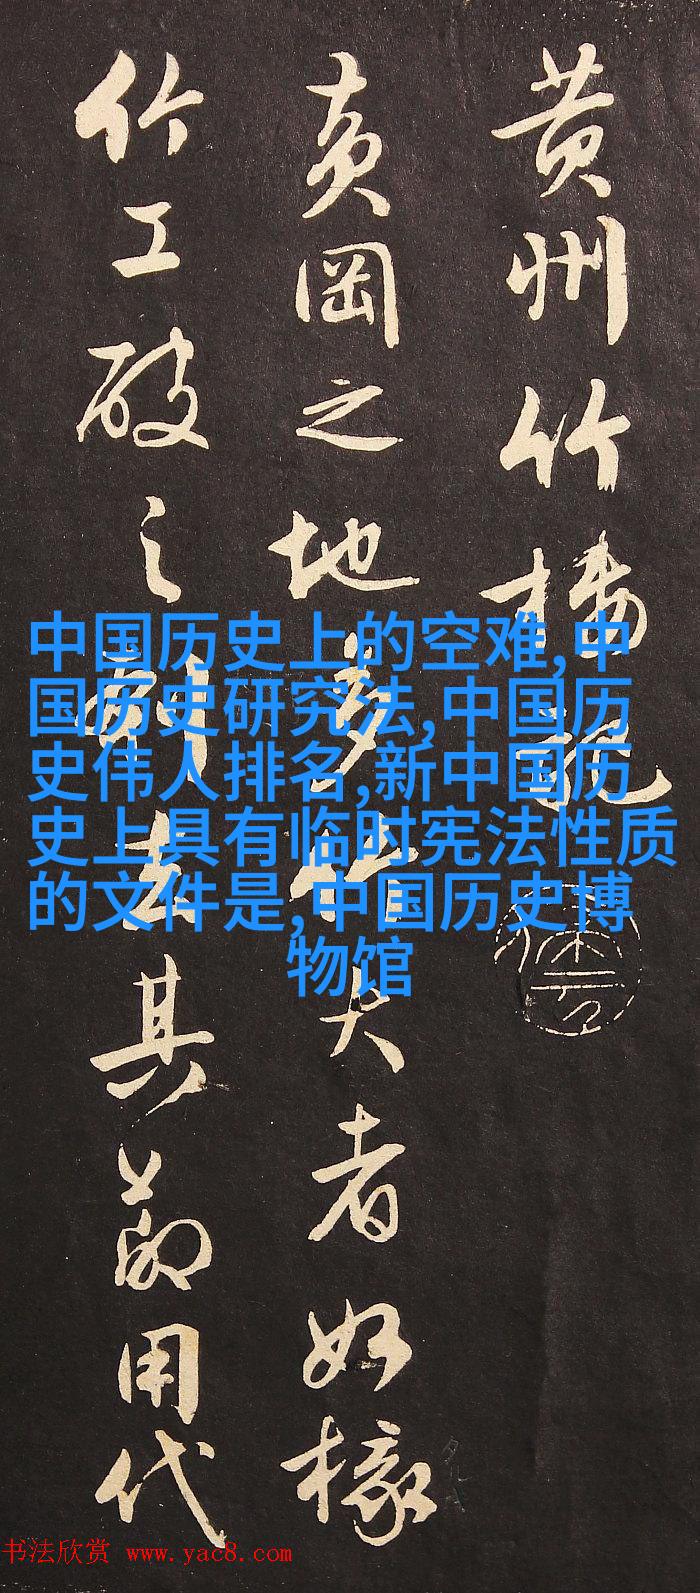 黄州竹楼记
黄冈之地多竹大者如椽
竹工破之刳去其节用代
中国历史上的空难,中
国历史研究法,中国历
史伟人排名,新中国历
史上具有临时宪法性质
的文件是,中国历史博
物馆
书法欣赏 www.yac8.com